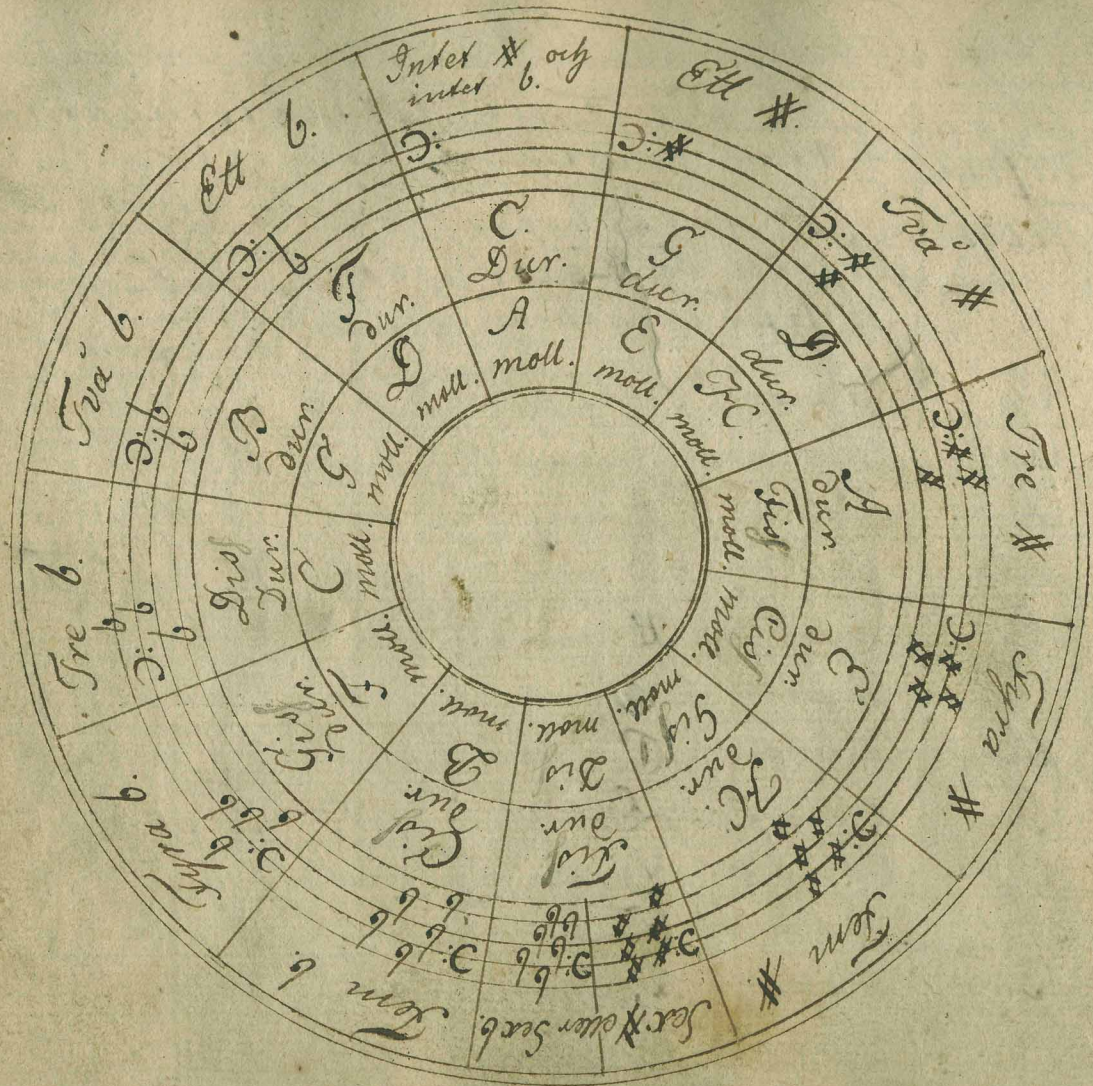 Intet # och
intet b.
Ett #.
Två #
Tre #
Fyra #.
Fem #
Sex # eller Sex b.
Fem b.
Fyra b.
Tre b.
Två b.
Ett b.
C.
Dur.
G
dur.
D.
dur.
A
dur.
E
dur.
H.
dur.
Fis
dur.
Cis
dur.
Gis
dur.
Dis
Dur.
B
dur
F
dur.
A
moll.
E
moll.
H.
moll.
Fis
moll.
Cis
moll.
Gis
moll.
Dis
moll.
B
moll.
F
moll.
C
moll.
G
moll.
D
moll.